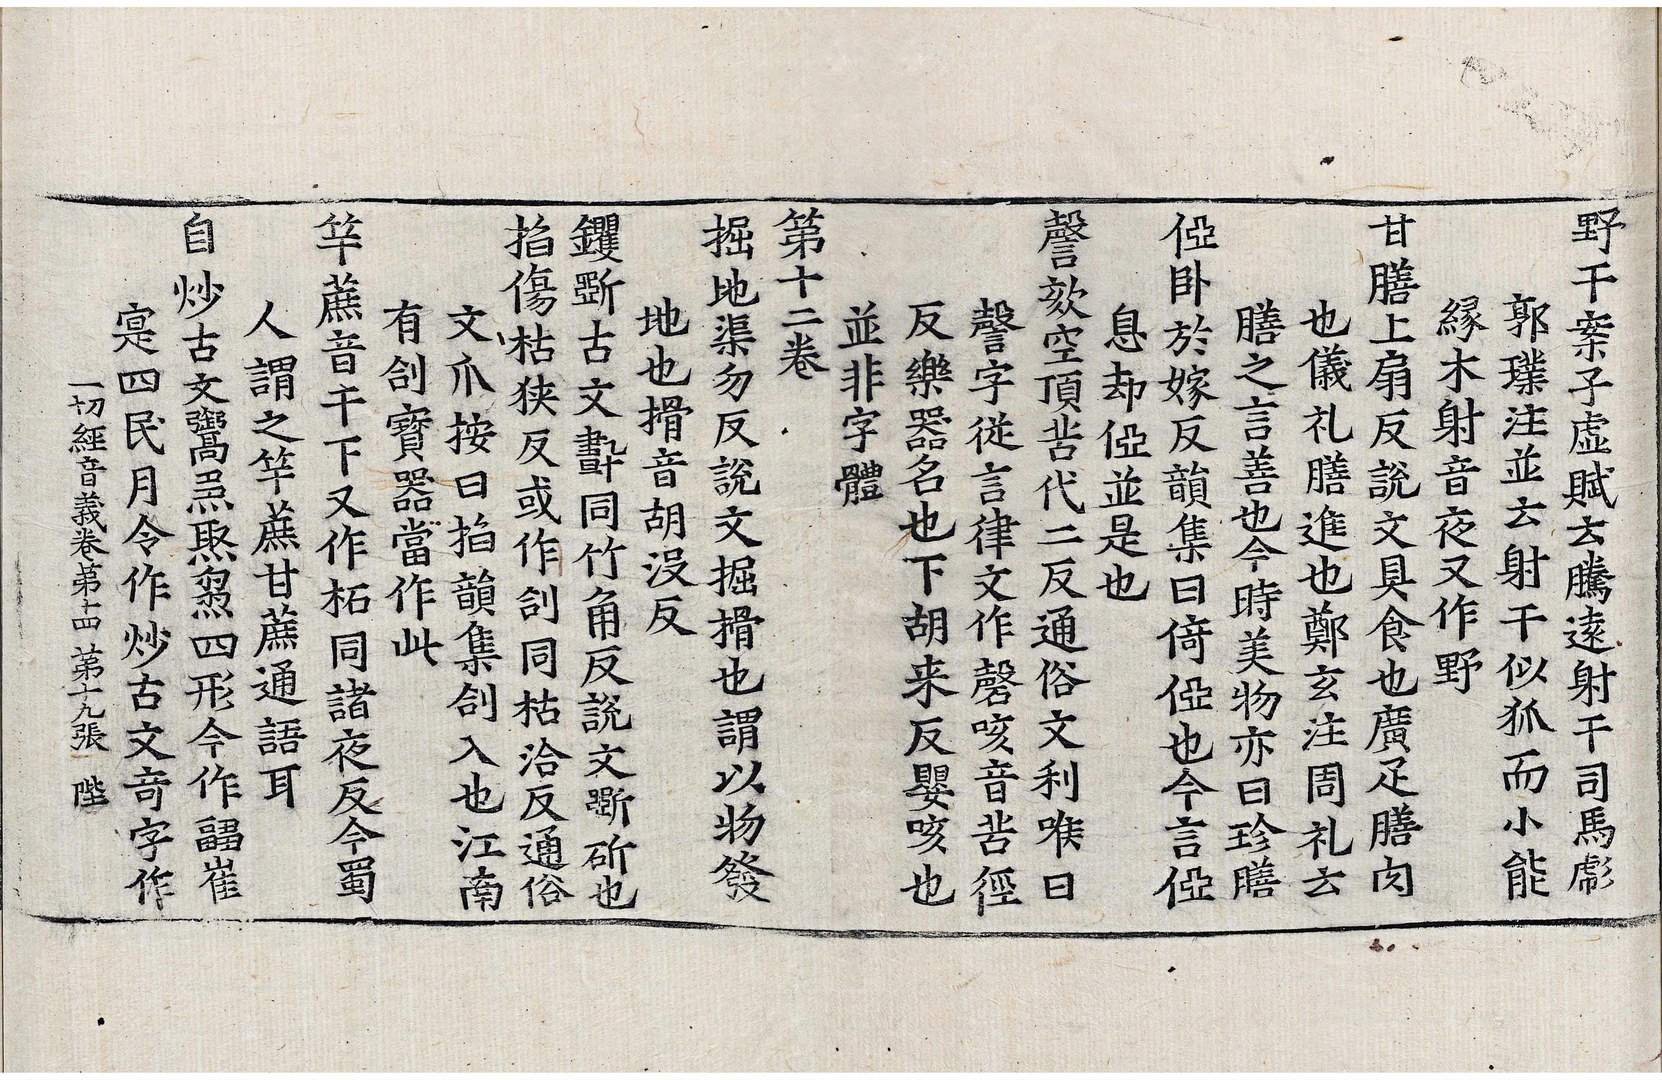 野干案子虛賦云騰遠射干司馬彪
郭璞注並云射干似狐而小能
緣木射音夜又作野
甘膳上扇反說文具食也廣疋膳肉
也儀礼膳進也鄭玄注周礼云
膳之言善也今時美物亦曰珍膳
俹卧於嫁反韻集曰倚俹也今言俹
息却俹並是也
謦欬空頂苦代二反通俗文利喉曰
謦字從言律文作磬咳音苦徑
反樂器名也下胡来反嬰咳也
並非字體
第十二卷
掘地渠勿反說文掘搰也謂以物發
地也搰音胡沒反
钁斲古文斵同竹角反說文斲斫也
掐傷枯狹反或作刮同枯洽反通俗
文爪按曰掐韻集刮入也江南
有刮寶器當作此
竿蔗音干下又作柘同諸夜反今蜀
人謂之竿蔗甘蔗通語耳
自炒古文鬻炰聚煼四形今作崔
寔四民月令作炒古文奇字作
一切經音義卷第十四 苐十九張 陛